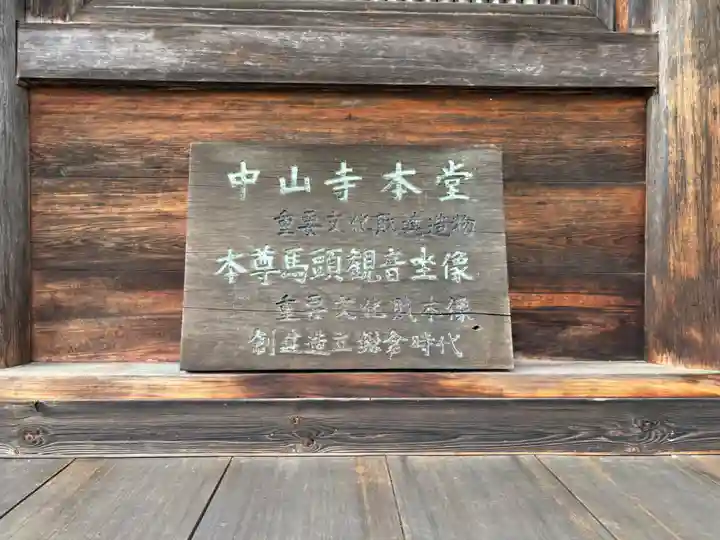 中山寺本堂
重要文化財建造物
本尊馬頭観音坐像
重要文化財木像
創建造立鎌倉時代